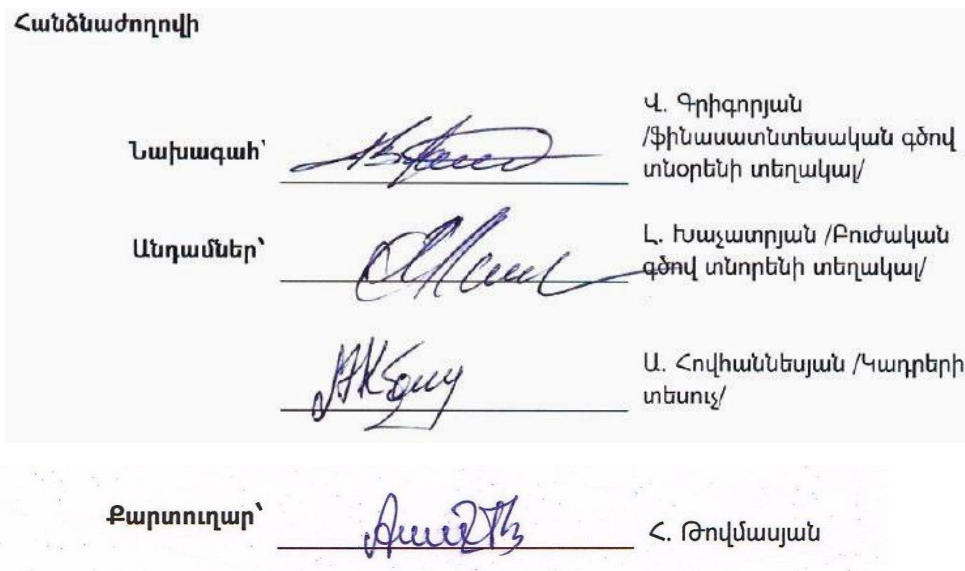 Հանձնաժողովի
Վ. Գրիգորյան
/ֆինասատնտեսական գծով
Նախագահ՝
տնօրենի տեղակալ/
Լ. Խաչատրյան /Բուժական
Անդամներ՝
գծով տնորենի տեղակալ/
Ա. Հովհաննեսյան /Կադրերի
տեսուչ/
Քարտուղար՝
Հ. Թովմասյան